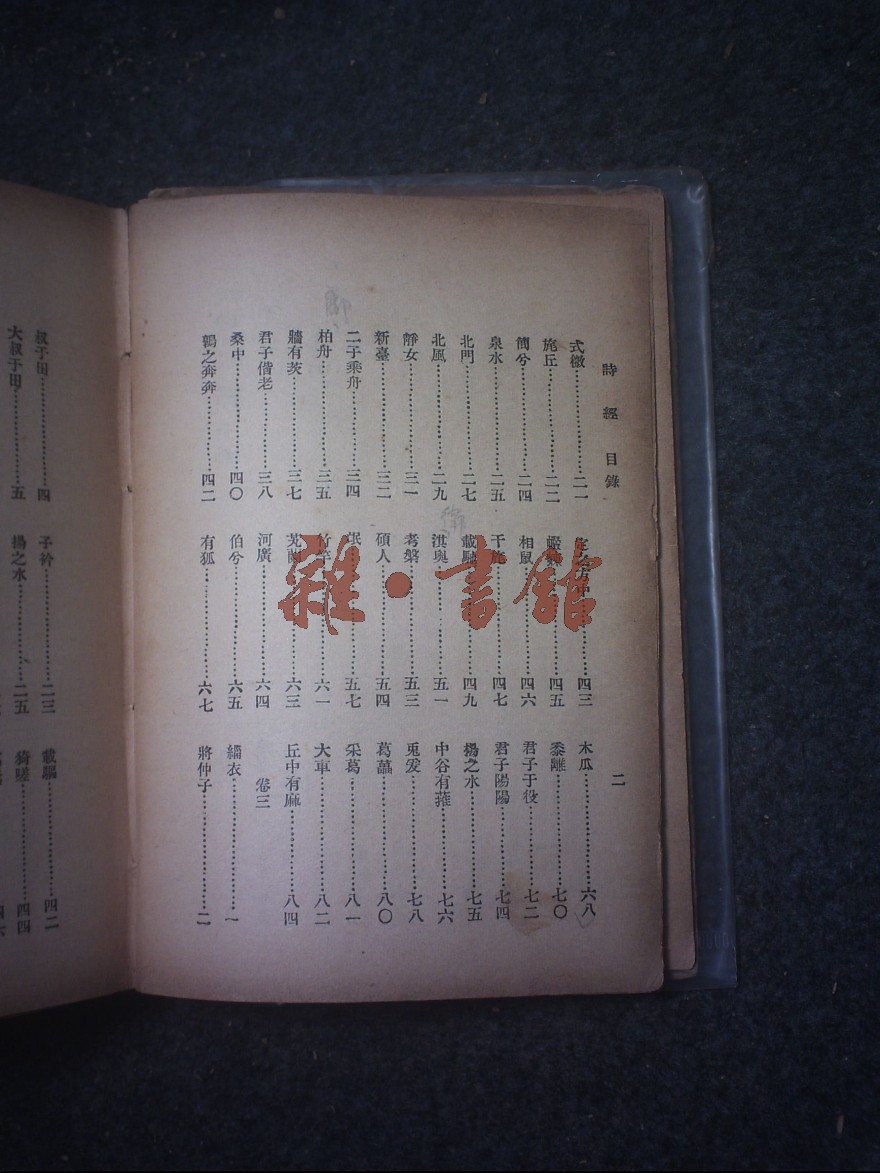 詩經目錄
二
式微⋯⋯二一
旄丘⋯⋯二二
簡兮⋯⋯二四
泉水⋯⋯二五
北門⋯⋯二七
北風⋯⋯二九
靜女⋯⋯三一
新臺⋯⋯三二
二子乘舟⋯⋯三四
柏舟⋯⋯三五
牆有茨⋯⋯三七
君子偕老⋯⋯三八
桑中⋯⋯四〇
鶉之奔奔⋯⋯四二
之方中⋯⋯四三
⋯⋯四五
相鼠⋯⋯四六
干旄⋯⋯四七
載馳⋯⋯四九
淇奧⋯⋯五一
考槃⋯⋯五三
碩人⋯⋯五四
氓⋯⋯五七
竹竿⋯⋯六一
芄蘭⋯⋯六三
河廣⋯⋯六四
伯兮⋯⋯六五
有狐⋯⋯六七
木瓜⋯⋯六八
黍離⋯⋯七〇
君子于役⋯⋯七二
君子陽陽⋯⋯七四
揚之水⋯⋯七五
中谷有蓷⋯⋯七六
兎爰⋯⋯七八
葛藟⋯⋯八〇
采葛⋯⋯八一
大車⋯⋯八二
丘中有麻⋯⋯八四
卷三
緇衣⋯⋯一
將仲子⋯⋯二
叔于田⋯⋯四
大叔于田⋯⋯五
子衿⋯⋯二三
揚之水⋯⋯二五
載驅⋯⋯四二
猗嗟⋯⋯四四
雜·書館